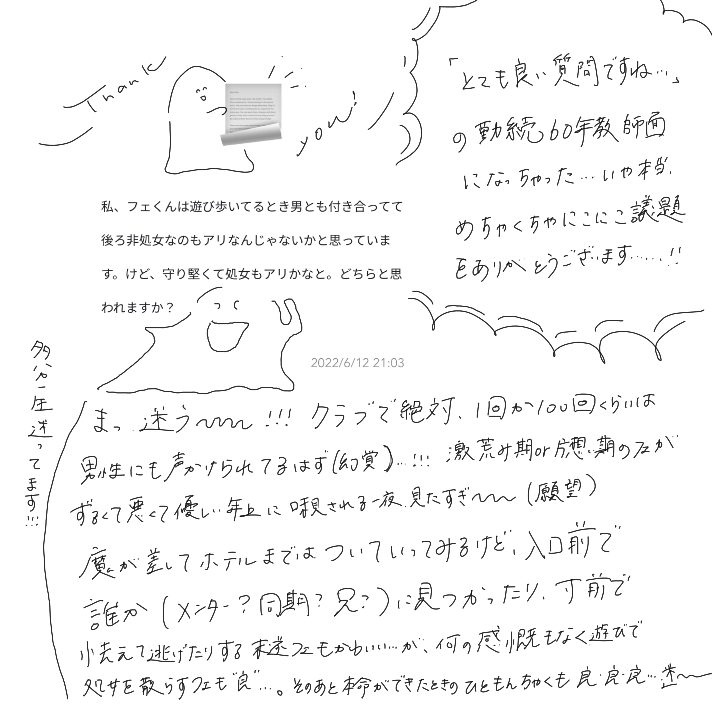 Thank
you!
「とても良い質問ですね…」
の動続60年教師面
になっちゃった…いや本当、
めちゃくちゃにこにこ議題
をありがとうございます……!!
私、フェくんは遊び歩いてるとき男とも付き合ってて
後ろ非処女なのもアリなんじゃないかと思っていま
す。けど、守り堅くて処女もアリかなと。どちらと思
われますか？
2022/6/12 21:03
多分一生迷ってます!!!
まっ 迷う〜〜〜 !!! クラブで絶対、1回か100回くらいは
男性にも声かけられてるはず(幻覚)…!!! 激荒み期or片想い期のフェが
ずるくて悪くて優しい年上に唆される一夜見たすぎ〜〜〜(願望)
魔が差してホテルまではついていってみるけど、入口前で
誰か(メンター?同期?兄?)に見つかったり、寸前で
怯えて逃げたりする未遂フェもかわいい…が、何の感慨もなく遊びで
処女を散らすフェも"良"…。そのあと本命ができたときのひともんちゃくも良・良・良…迷〜